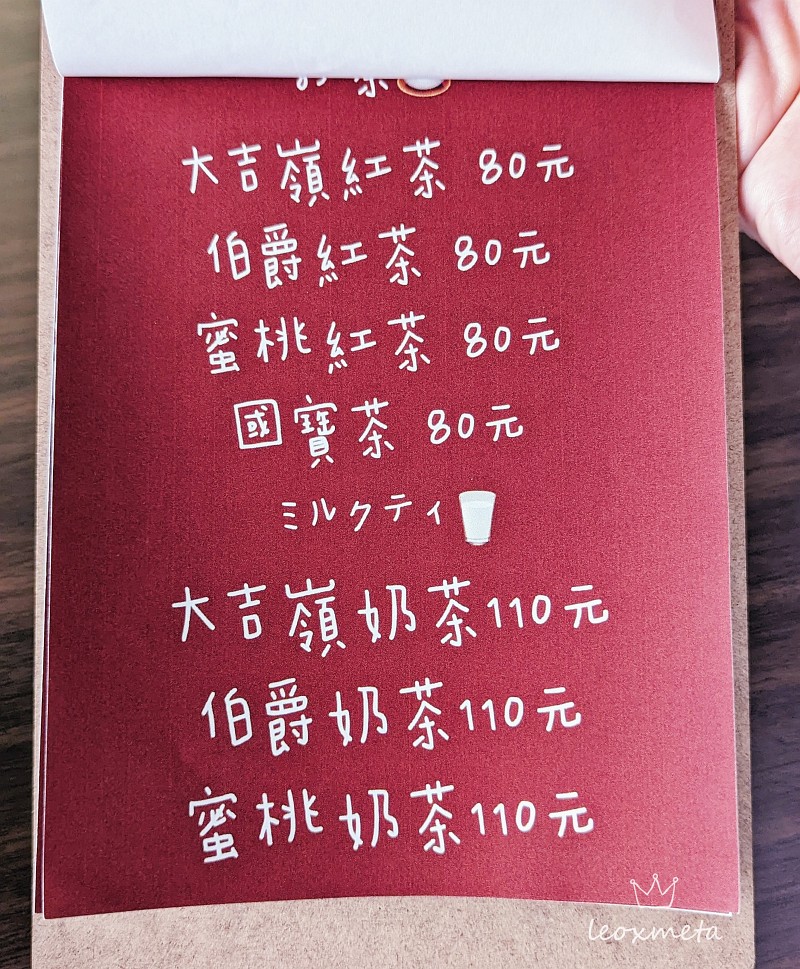 お茶
大吉嶺紅茶 80元
伯爵紅茶 80元
蜜桃紅茶 80元
國寶茶 80元
ミルクティ
大吉嶺奶茶110元
伯爵奶茶110元
蜜桃奶茶110元
leoxmeta